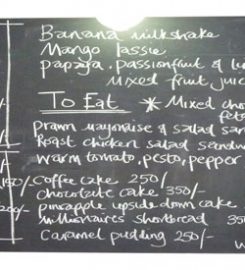 Banana milkshake
Mango lassie
papaya, passionfruit &
mixed fruit juic
To Eat * Mixed cho
Prawn mayonaise & salad san
Roast chicken salad sandw
warm tomato, pesto, pepper
150/- Coffee cake 250/-
chocolate cake 350/-
200/- pineapple upside down cake
millionaires shortbread 350
Caramel pudding 250/-